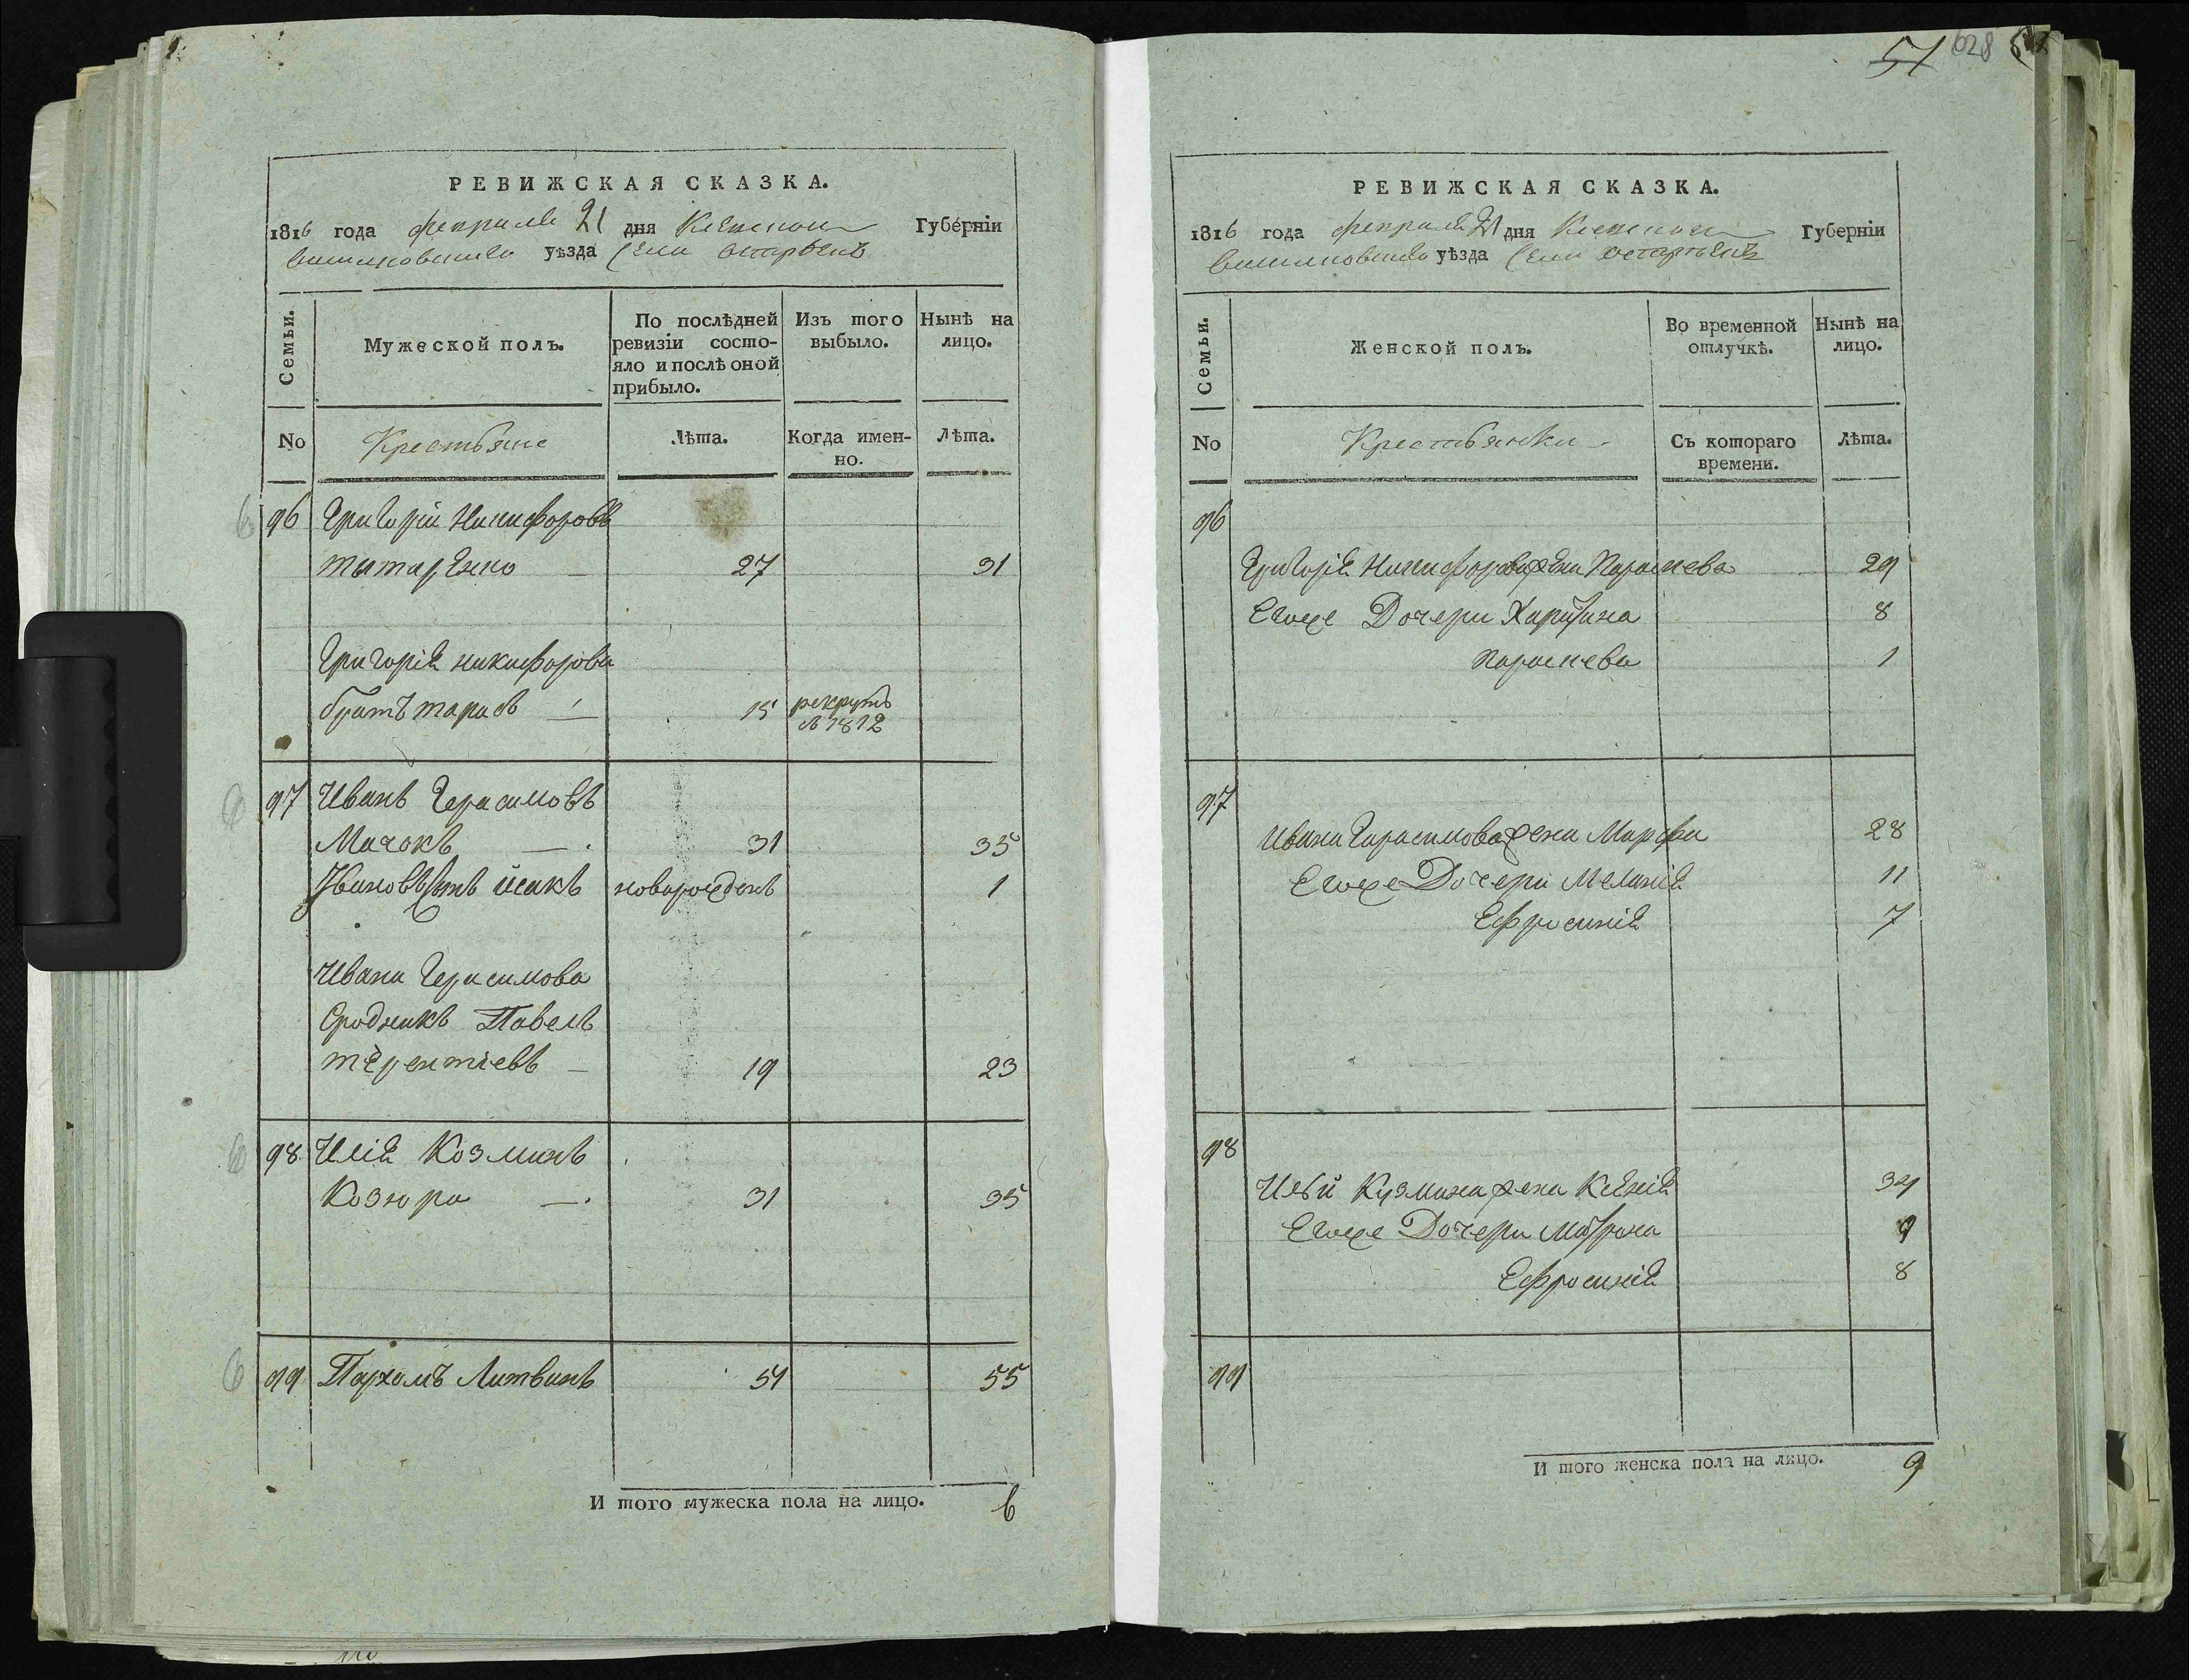 РЕВИЖСКАЯ СКАЗКА.
1816 года февраля 21 дня Киевской Губерніи
Васильковского уѣзда Села Острѣекъ
Семьи.
Мужеской полъ.
По послѣдней ревизіи состо-
яло и послѣ оной
прибыло.
Изъ того
выбыло.
Нынѣ на
лицо.
No
Крестьяне
Лѣта.
Когда имен-
но.
Лѣта.
96 Григорій Никифоровъ
татаренко — 27 31
Григорія никифорова
братъ тарасъ — 15 рекрутъ
в 1812
97 Иванъ Герасимовъ
Мачокъ — 31 35
Ивановъ Сынъ исакъ новорожденъ 1
Ивана Герасимова
Сродникъ Павелъ
терентіевъ — 19 23
98 Илія Козминъ
Козюра — 31 35
99 Пархомъ Литвинъ 51 55
И того мужеска пола на лицо. 6
51 628
РЕВИЖСКАЯ СКАЗКА.
1816 года февраля 21 дня Киевской Губерніи
Васильковского уѣзда Села Острѣекъ
Семьи.
Женской полъ.
Во временной
отлучкѣ.
Нынѣ на
лицо.
No
Крестьянки
Съ котораго
времени.
Лѣта.
96
Григорія Никифорова жена Парасковева 29
Егоже Дочери Харитина 8
Парасковева 1
97
Ивана Гарасимова жена Марфа 28
Егоже Дочери Меланія 11
Ефросинія 7
98
Ильи Кузмина жена Ксенія 34
Егоже Дочери Матрона 9
Ефросинія 8
99
И того женска пола на лицо. 9